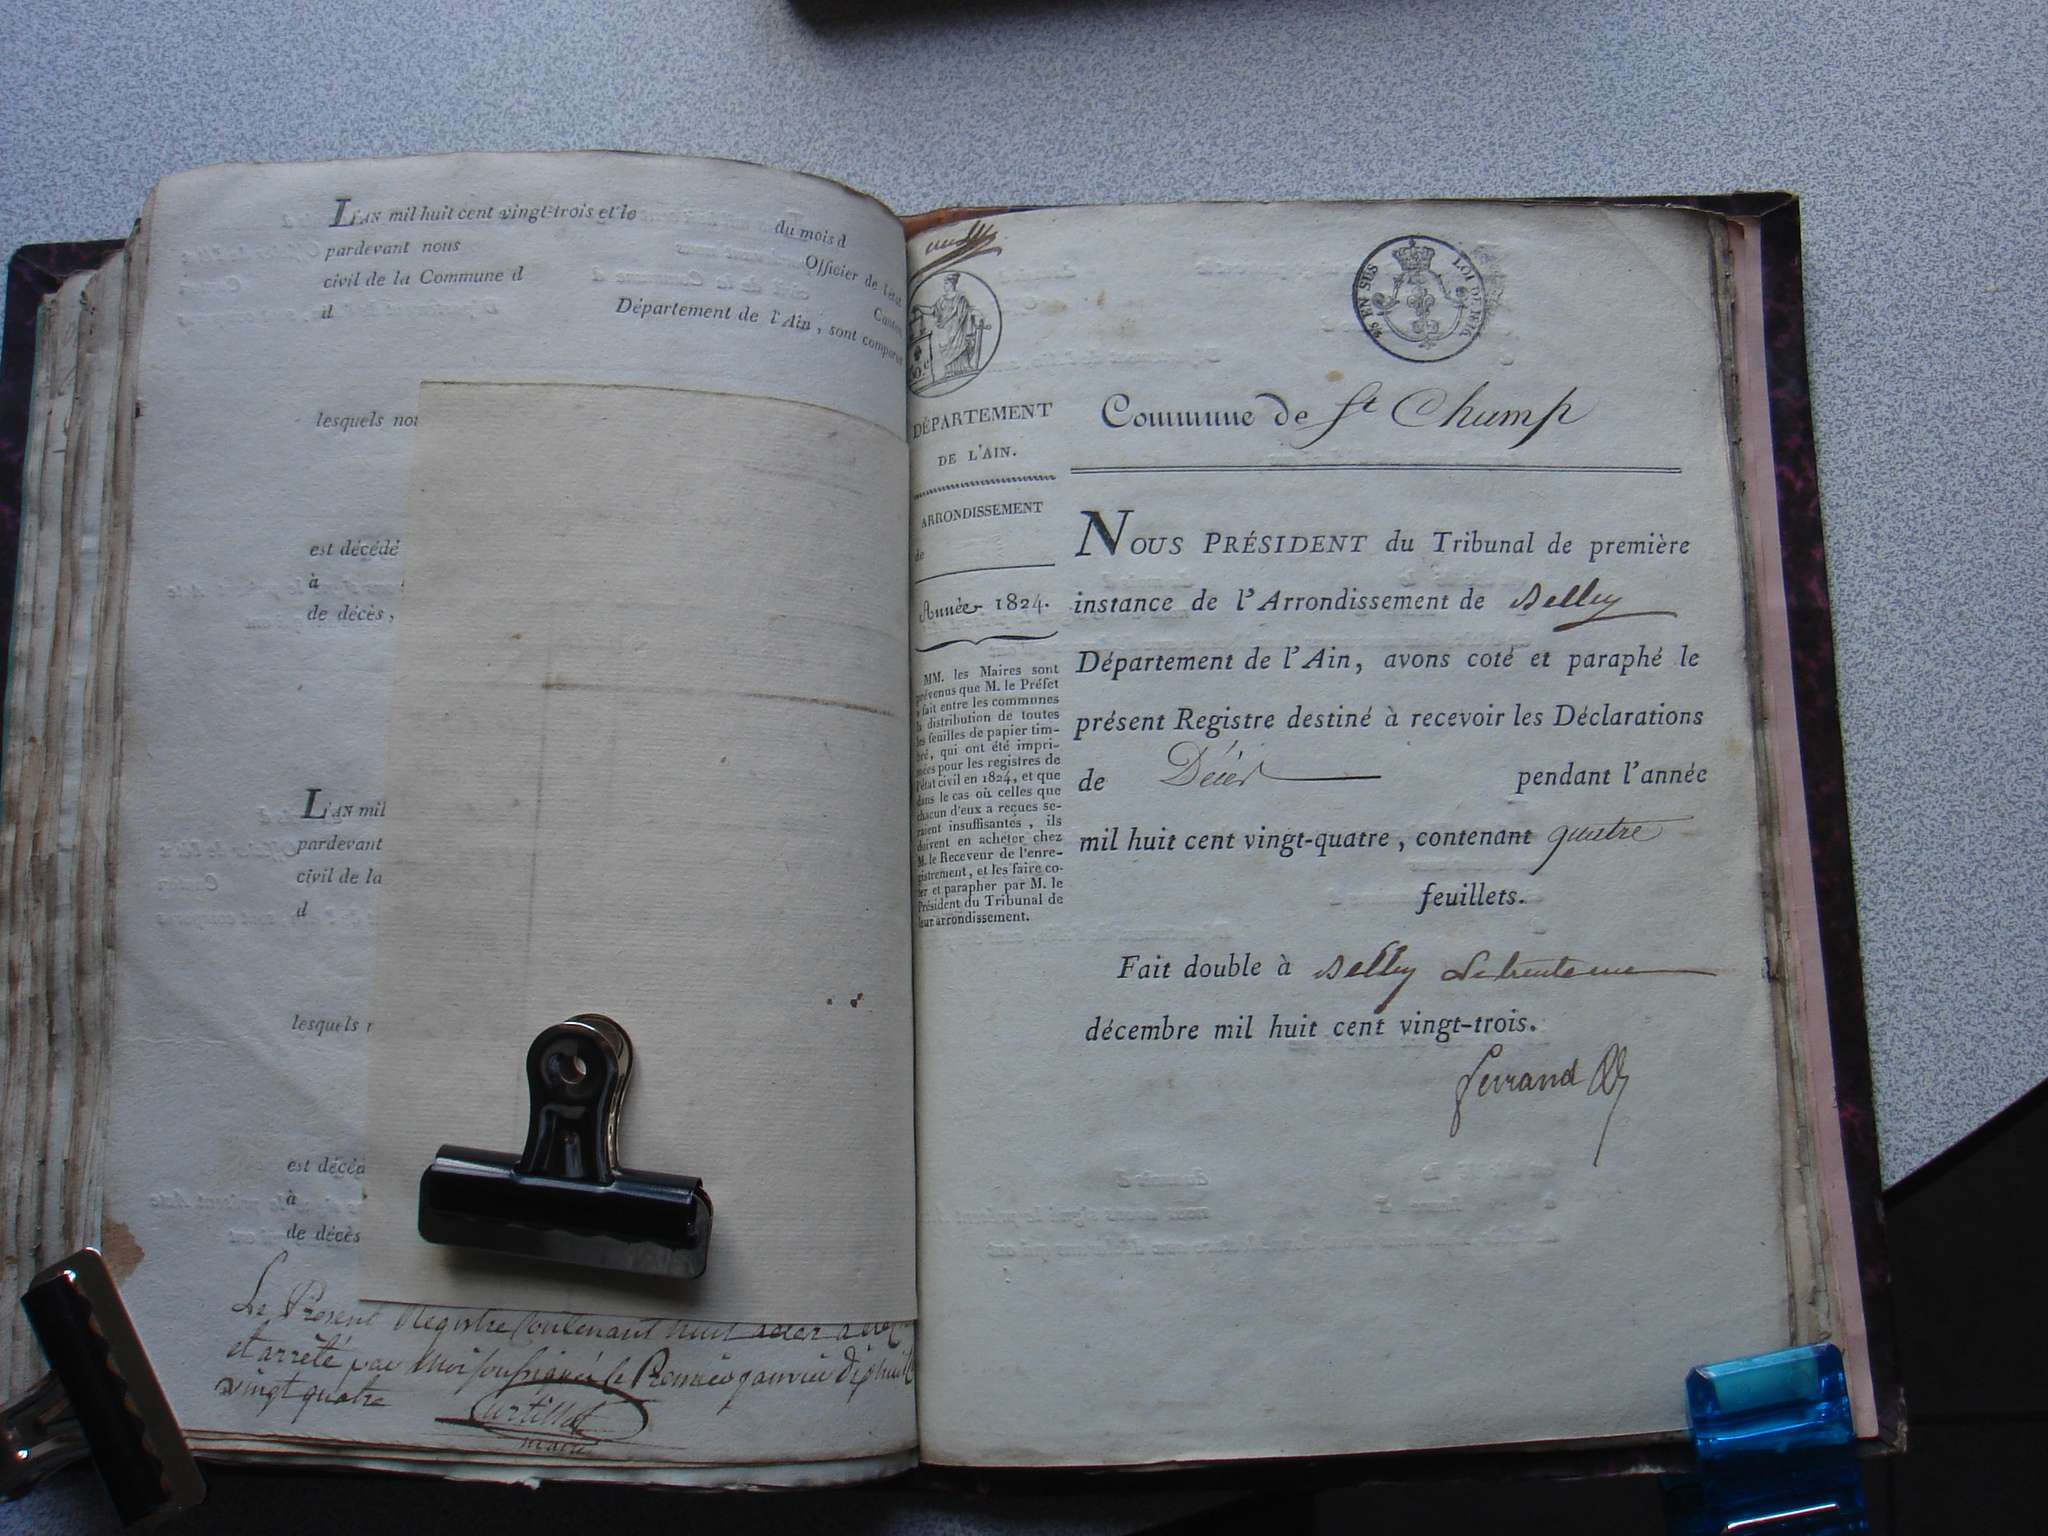 L'AN mil huit cent vingt-trois et le du mois d
pardevant nous Officier de l'état
civil de la Commune d Canton
d Département de l'Ain, sont comparus
lesquels
est décédé
à
de décès,
L'AN mil
pardevant
civil de la
d
lesquels
est
à
de décès
Le Present Registre Contenant huit actes a été
et arrêté par Moi soussigné le Premier janvier
vingt quatre
Curtillet
maire
EN SUS
LOI DE 1816
DÉPARTEMENT
DE L'AIN.
ARRONDISSEMENT
de
Année 1824.
MM. les Maires sont
prévenus que M. le Préfet
a fait entre les communes
la distribution de toutes
les feuilles de papier tim-
bré, qui ont été impri-
mées pour les registres de
l'état civil en 1824, et que
dans le cas où celles que
chacun d'eux a reçues se-
raient insuffisantes, ils
doivent en acheter chez
M. le Receveur de l'enre-
gistrement, et les faire co-
ter et parapher par M. le
Président du Tribunal de
leur arrondissement.
Commune de St Champ
NOUS PRÉSIDENT du Tribunal de première
instance de l'Arrondissement de Belley
Département de l'Ain, avons coté et paraphé le
présent Registre destiné à recevoir les Déclarations
de Décès pendant l'année
mil huit cent vingt-quatre, contenant quatre
feuillets.
Fait double à Belley Le trente une
décembre mil huit cent vingt-trois.
Ferrand